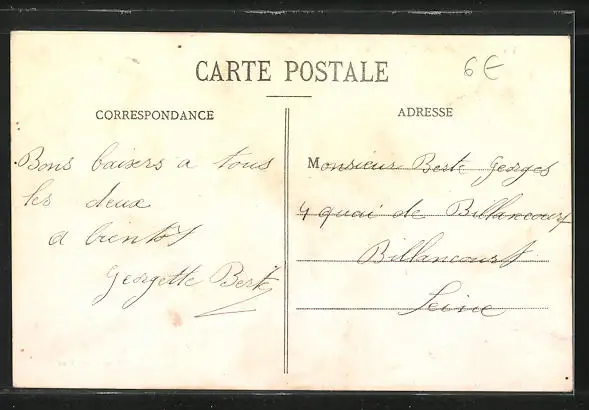 CARTE POSTALE
6€
CORRESPONDANCE
ADRESSE
Bons baisers a tous
les deux
a bientot
Georgette Berte
Monsieur Berte Georges
4 quai de Billancourt
Billancourt
Seine